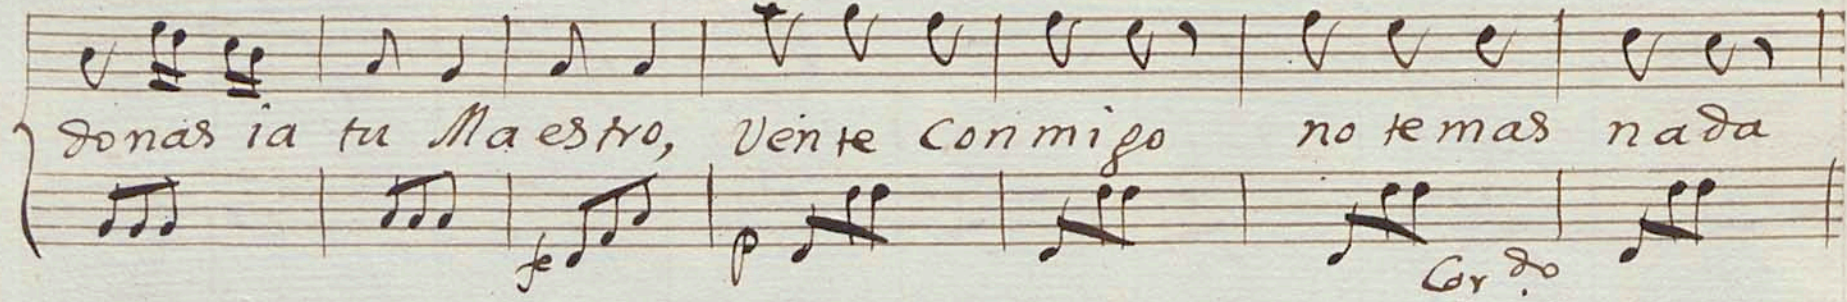 donas ia tu Maestro, Vente Conmigo no temas nada
fe p
Cor do